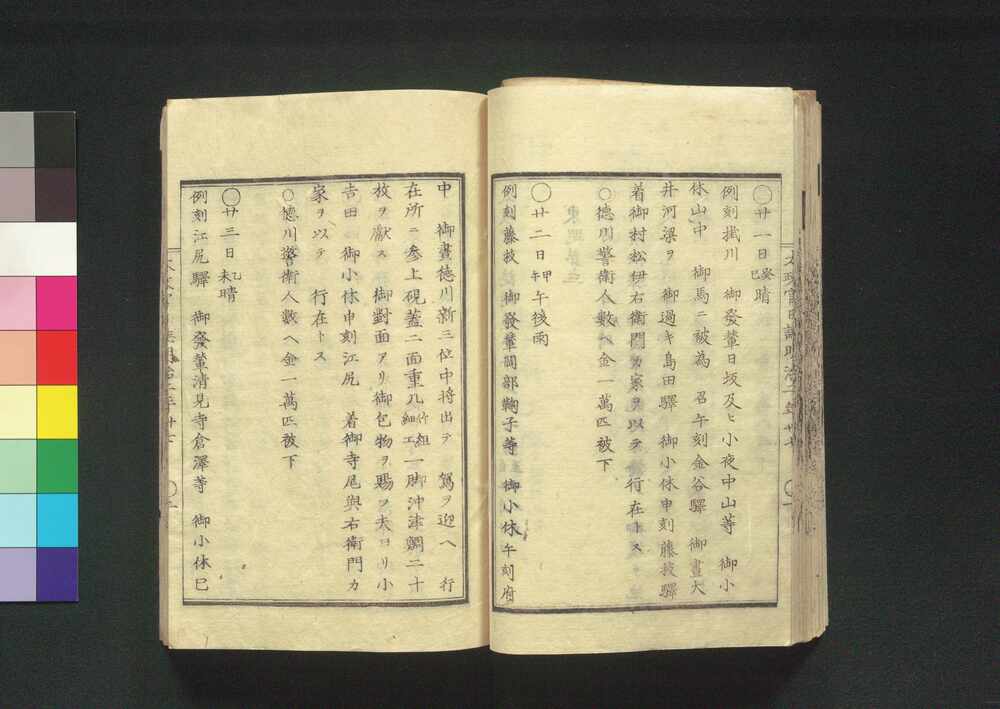 〇廿一日癸巳晴
例刻掛川 御發輦日坂及ヒ小夜中山等 御小
休山中 御馬ニ被為 召午刻金谷驛 御晝大
井河梁ヲ 御過キ島田驛 御小休申刻藤枝驛
着御村松伊右衛門カ家ヲ以テ 行在トス
○徳川警衛人數ヘ金一萬匹被下
〇廿二日甲午午後雨
例刻藤枝 御發輦岡部鞠子等 御小休午刻府
中 御晝徳川新三位中将出テ 駕ヲ迎ヘ 行
在所ニ參上硯蓋二面重九組竹細工一脚沖津鯛二十
枚ヲ獻ス 御對面アリ御包物ヲ賜フ夫ヨリ小
吉田 御小休申刻江尻 着御寺尾與右衛門カ
家ヲ以テ 行在トス
○徳川警衛人數ヘ金一萬匹被下
〇廿三日乙未晴
例刻江尻驛 御發輦清見寺倉澤等 御小休巳